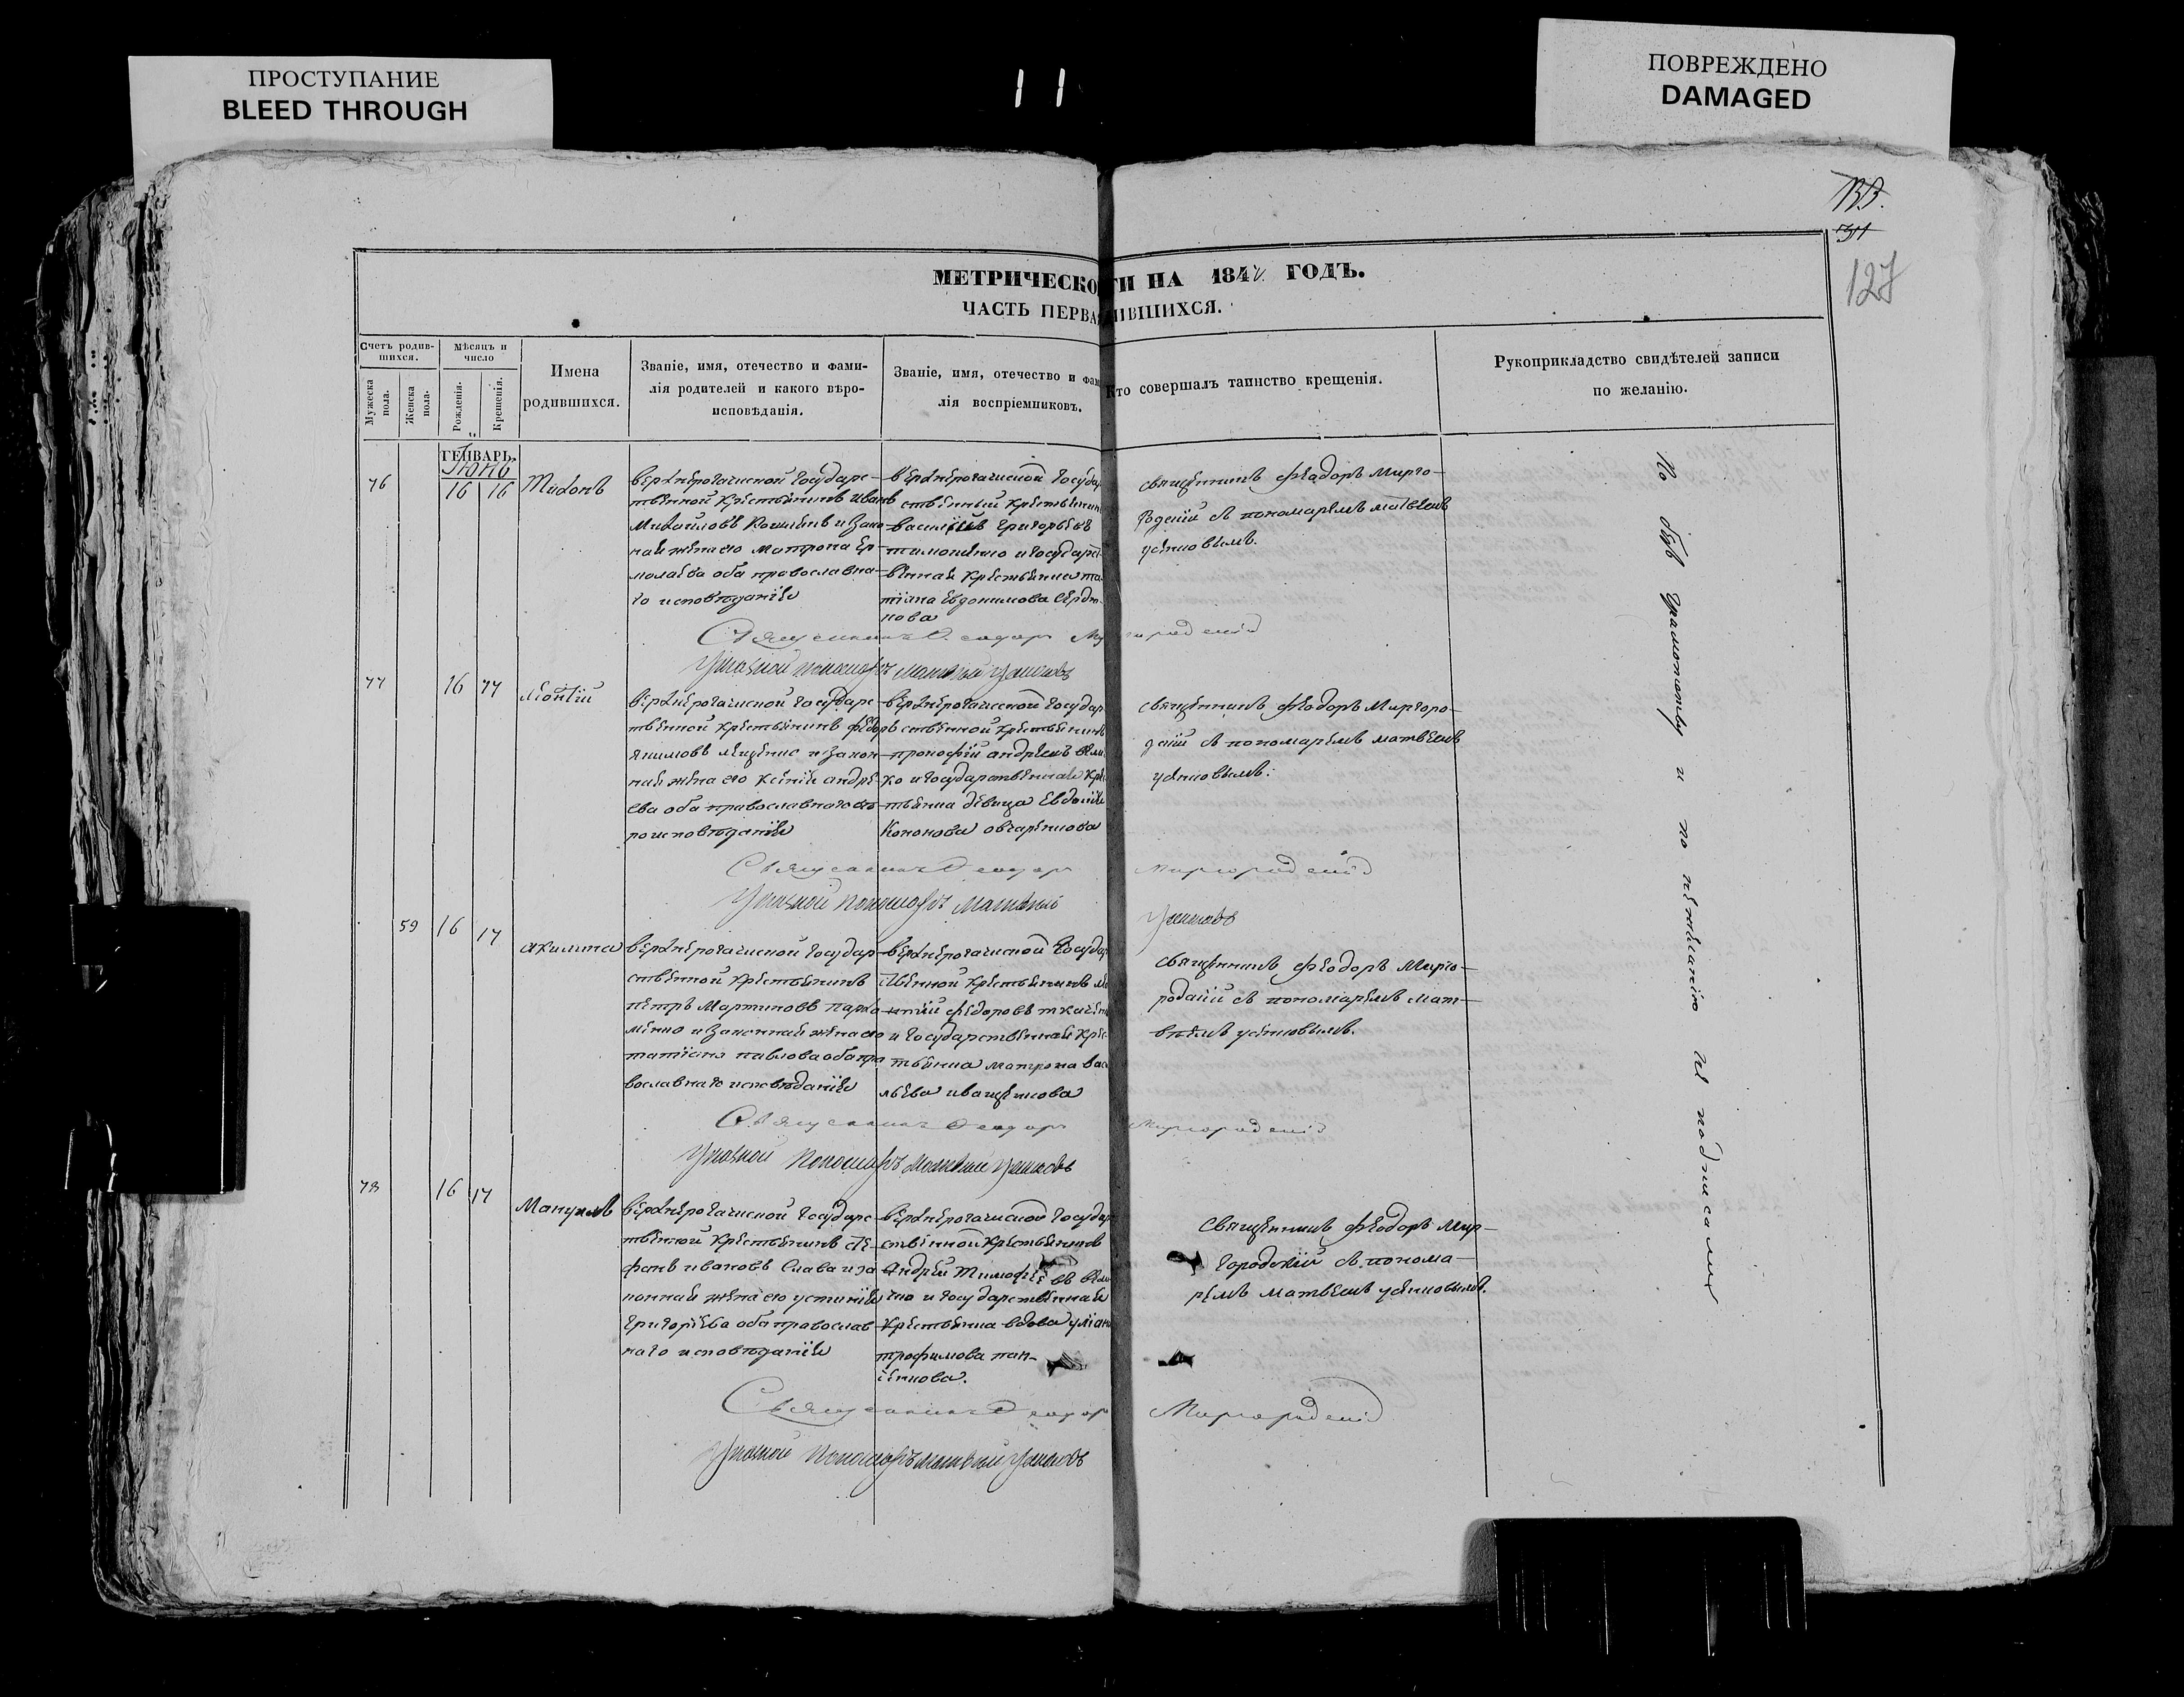 ПРОСТУПАНИЕ
BLEED THROUGH
ПОВРЕЖДЕНО
DAMAGED
11
127
МЕТРИЧЕСКО ТИ НА 184 ГОДЪ.
ЧАСТЬ ПЕРВА ИВШИХСЯ.
Счетъ родив-
шихся.
Мужеска пола.
Женска пола.
Мѣсяцъ и
число
Рожденія.
Крещенія.
Имена
родившихся.
Званіе, имя, отечество и фами-
лія родителей и какого вѣро-
исповѣданія.
Званіе, имя, отечество и фам
лія воспріемниковъ.
Кто совершалъ таинство крещенія.
Рукоприкладство свидѣтелей записи
по желанію.
ГЕНВАРЬ.
Июнь
76
16 16
Тихонъ
верхнерогачиской государс-
твенной крестьянинъ иванъ
Михайловъ и зако-
ная жена его Матрона Ер-
молаева оба православна-
го исповѣданія
верхнерогачиской государ
ственный крестьянин
василій Григорьевъ
тимошенко и государст-
венная крестьянка та-
тіана Евдокимова
кова
священникъ Феодоръ Мирго-
родскій съ пономаремъ матвѣемъ
усенковымъ.
Священникъ Феодоръ Миргородскій
Указной пономарь Матвей Усенковъ
77
16 17
Леонтій
верхнерогачиской государс-
твенной крестьянинъ федоръ
якимовъ ищенко и закон-
ная жена его Ксенія андре-
ева оба православнаго вѣ-
роисповѣданія
верхнерогачиской государ
ственной крестьянинъ
прокофій андреевъ вели
ко и государственная крес
тьянка девица Евдокія
Кононова овчаренкова
священникъ Феодоръ Миргоро-
дскій съ пономаремъ матвѣемъ
усенковымъ.
Священникъ Феодоръ Миргородскій
Указной пономарь Матвей Усенковъ
59
16 17
акилина
верхнерогачиской государ-
ственной крестьянинъ
петръ Мартиновъ пархо-
менко и законная жена его
татіана павлова оба пра
вославнаго исповѣданія
верхнерогачиской государ
твенной крестьянинъ ле
онтій федоровъ ткачен
и государственная крес-
тьянка матрона васи
льева иващенкова
священникъ Феодоръ Мирго-
родскій съ пономаремъ мат-
веемъ усенковымъ.
Священникъ Феодоръ Миргородскій
Указной пономарь Матвей Усенковъ
78
16 17
Мануилъ
верхнерогачиской государс-
твенной крестьянинъ сте-
фанъ ивановъ Слава и за
конная жена его устинія
Григорьева оба православ
наго исповѣданія
верхнерогачиской государ
ственной крестьянинъ
Андрей Тимофеевъ вели
ко и государственная
крестьянка вдова уліана
трофимова пан-
сенкова.
священникъ Феодоръ Мир-
городскій съ понома-
ремъ матвеемъ усенковымъ.
Священникъ Феодоръ Миргородскій
Указной пономарь Матвей Усенковъ
По безграмотству и по нежеланію не подписались